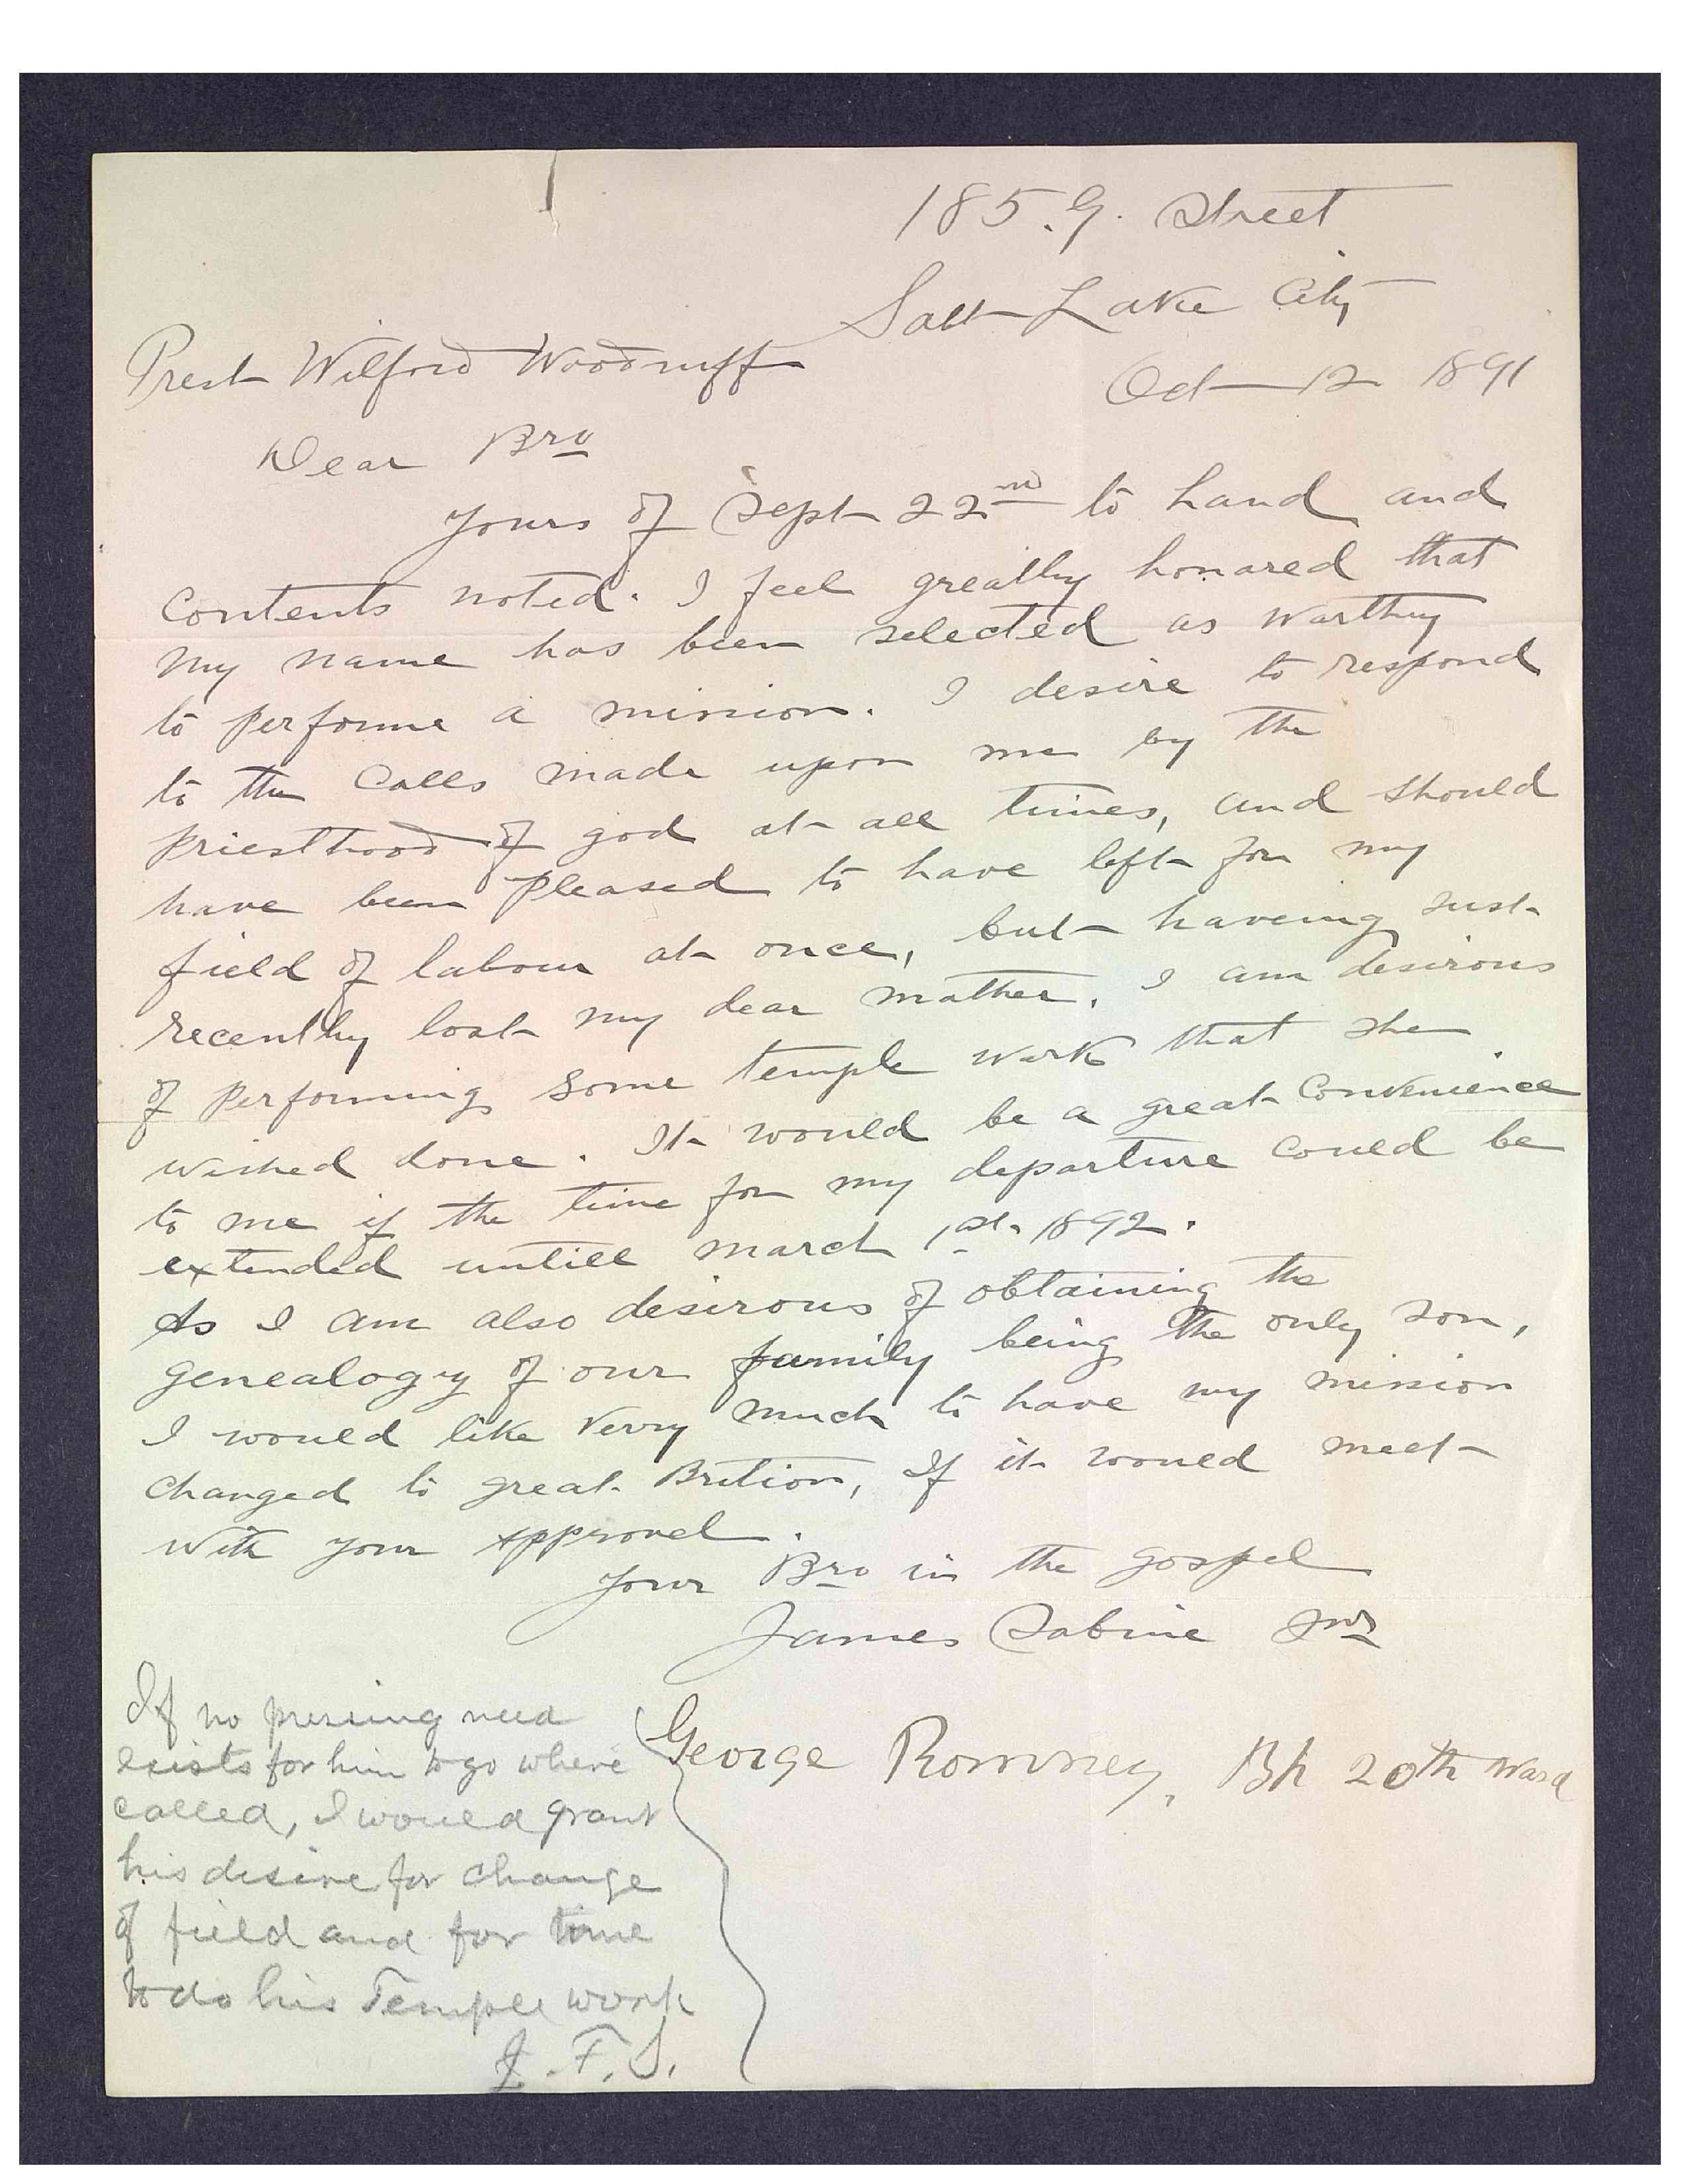 185. G. Street
Salt Lake City
Prest Wilford Woodruff
Oct 12 1891
Dear Bro
Yours of Sept 22nd to hand and
Contents noted. I feel greatly honared that
my name has been selected as warthy
to performe a mission. I desire to respond
to the Calls made upon me by the
priesthood of god at all times, and should
have been pleased to have left for my
field of labour at once, but haveing just
recently lost my dear mather. I am desirous
of performing some temple wark that she
wished done. It would be a great Convenience
to me if the time for my departure could be
extended untill march 1st 1892.
As I am also desirous of obtaining the
genealogy of our family being the only son,
I would like verry much to have my mission
changed to great Brition, If it would meet
with your approvel.
Your Bro in the gospel
James Sabine Jnr
George Romney, Bp 20th Ward
If no pressing need
exists for him to go where
called, I would grant
his desire for change
of field and for time
to do his Temple work
J. F. S.